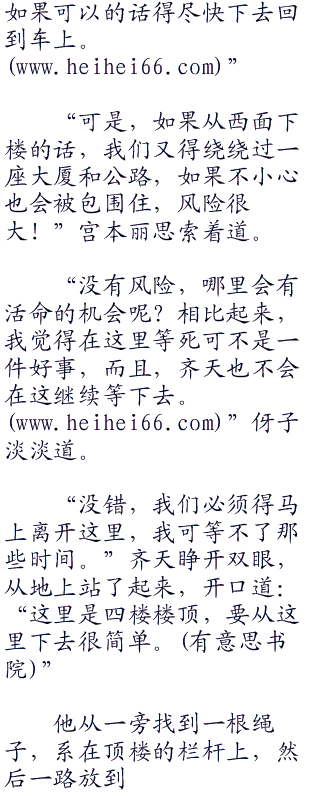 如果可以的话得尽快下去回
到车上。
(www.heihei66.com)”
“可是，如果从西面下
楼的话，我们又得绕绕过一
座大厦和公路，如果不小心
也会被包围住，风险很
大！”宫本丽思索着道。
“没有风险，哪里会有
活命的机会呢？相比起来，
我觉得在这里等死可不是一
件好事，而且，齐天也不会
在这继续等下去。
(www.heihei66.com)”伢子
淡淡道。
“没错，我们必须得马
上离开这里，我可等不了那
些时间。”齐天睁开双眼，
从地上站了起来，开口道：
“这里是四楼楼顶，要从这
里下去很简单。(有意思书
院)”
他从一旁找到一根绳
子，系在顶楼的栏杆上，然
后一路放到